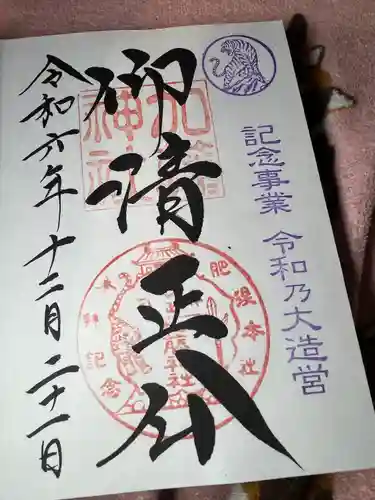 記念事業 令和乃大造営
御清正公
加藤神社
肥後本社
参拝記念
令和六年十二月二十一日